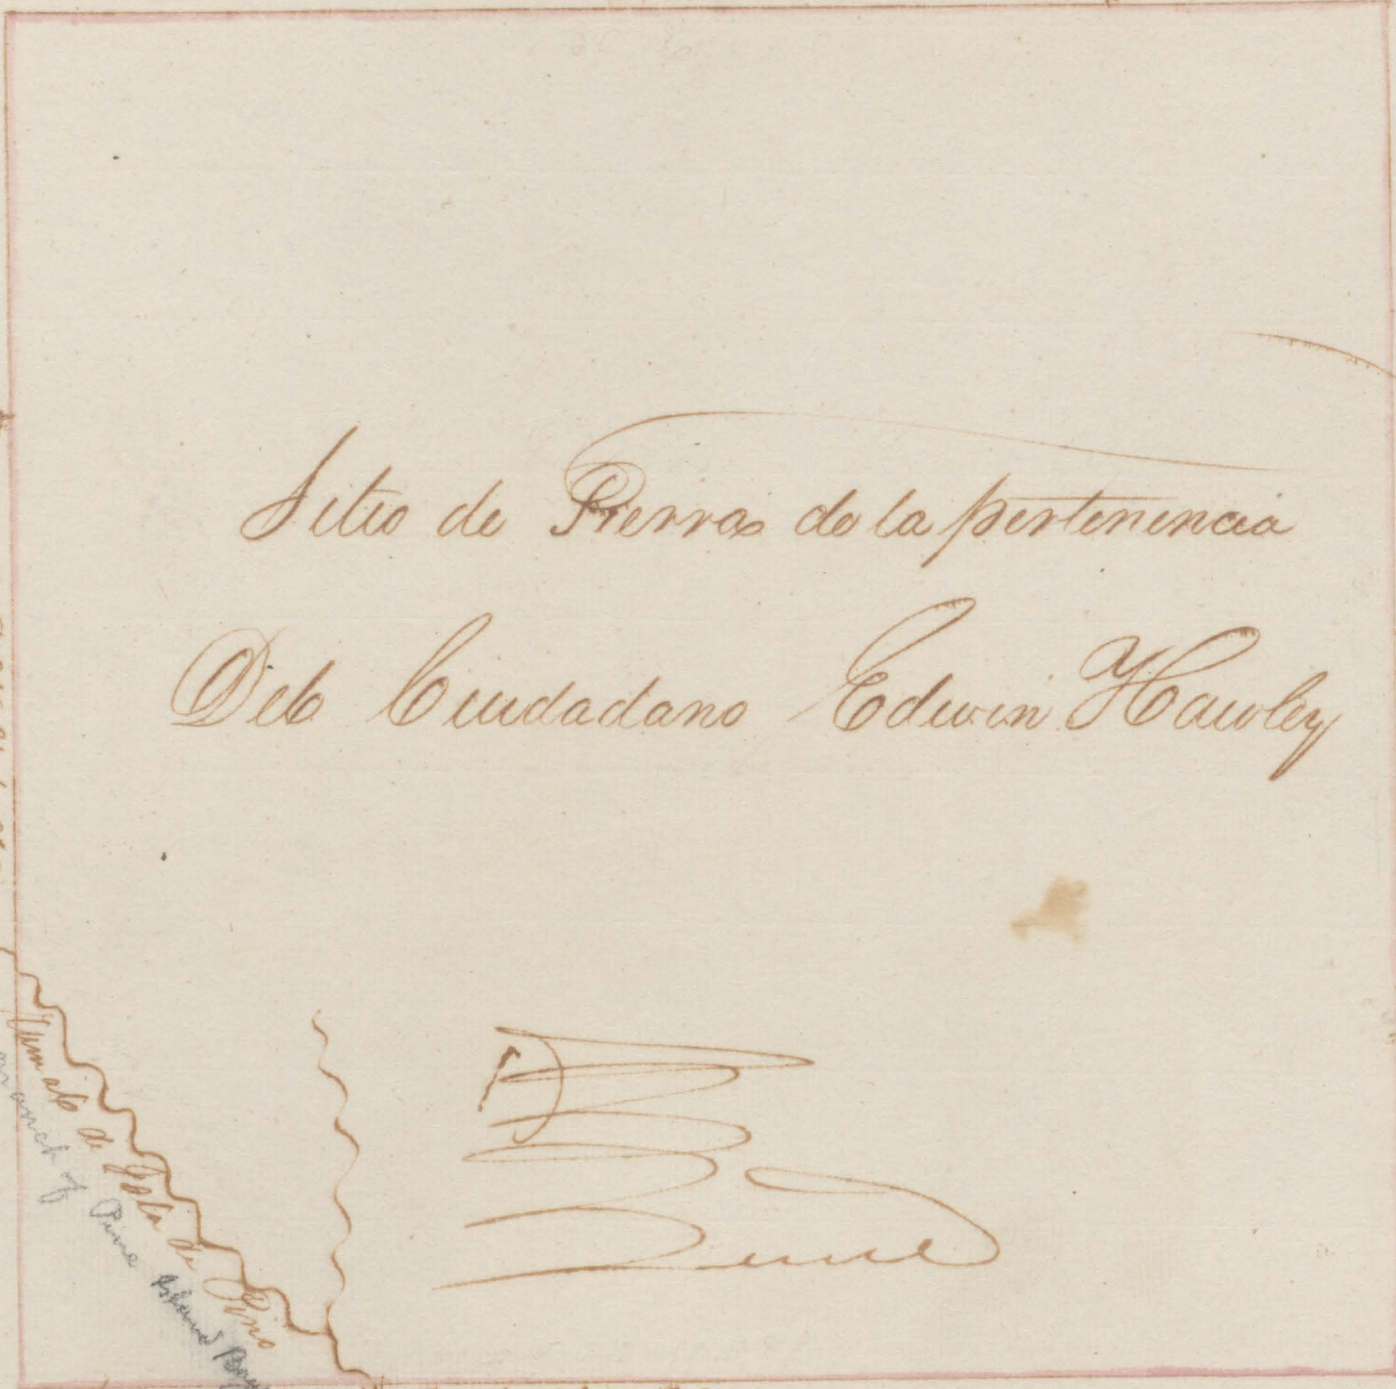 Sitio de Tierras de la pertenencia
Del Ciudadano Edwin Hawley
Ramal de Isla de Pino
Branch of Pine Island Bay